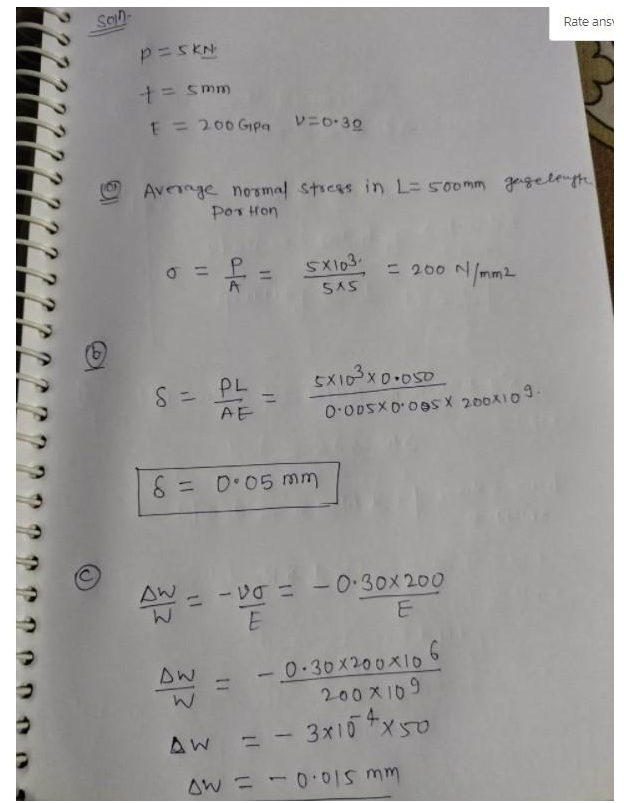 Soln-
Rate answ
P = 5 KN
t = 5 mm
E = 200 Gpa ν=0.30
(a) Average normal stress in L= 500mm gagelength
Portion
σ = P/A = 5×10³/5×5 = 200 N/mm2
(b)
δ = PL/AE = 5×10³×0.050/0.005×0.005× 200×10⁹.
δ = 0.05 mm
(c)
ΔW/W = -νσ/E = -0.30×200/E
ΔW/W = -0.30×200×10⁶/200×10⁹
ΔW = - 3×10⁻⁴×50
ΔW = - 0.015 mm